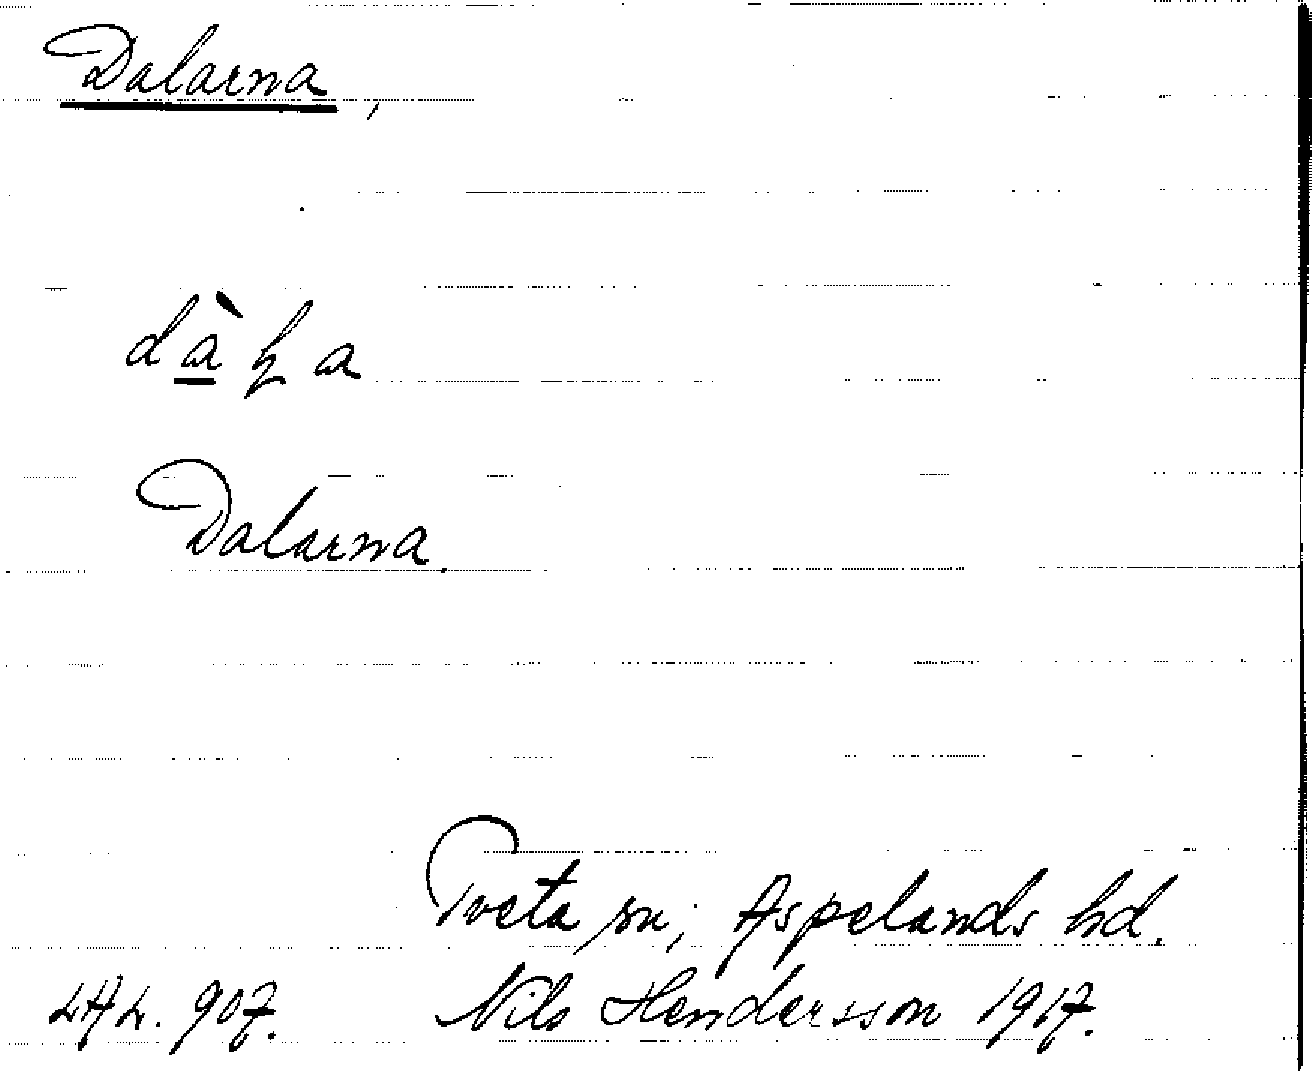 Dalarna,
dàɫa
Dalarna.
Tveta sn; Aspelands hd.
LAL. 907. Nils Hendersson 1917.